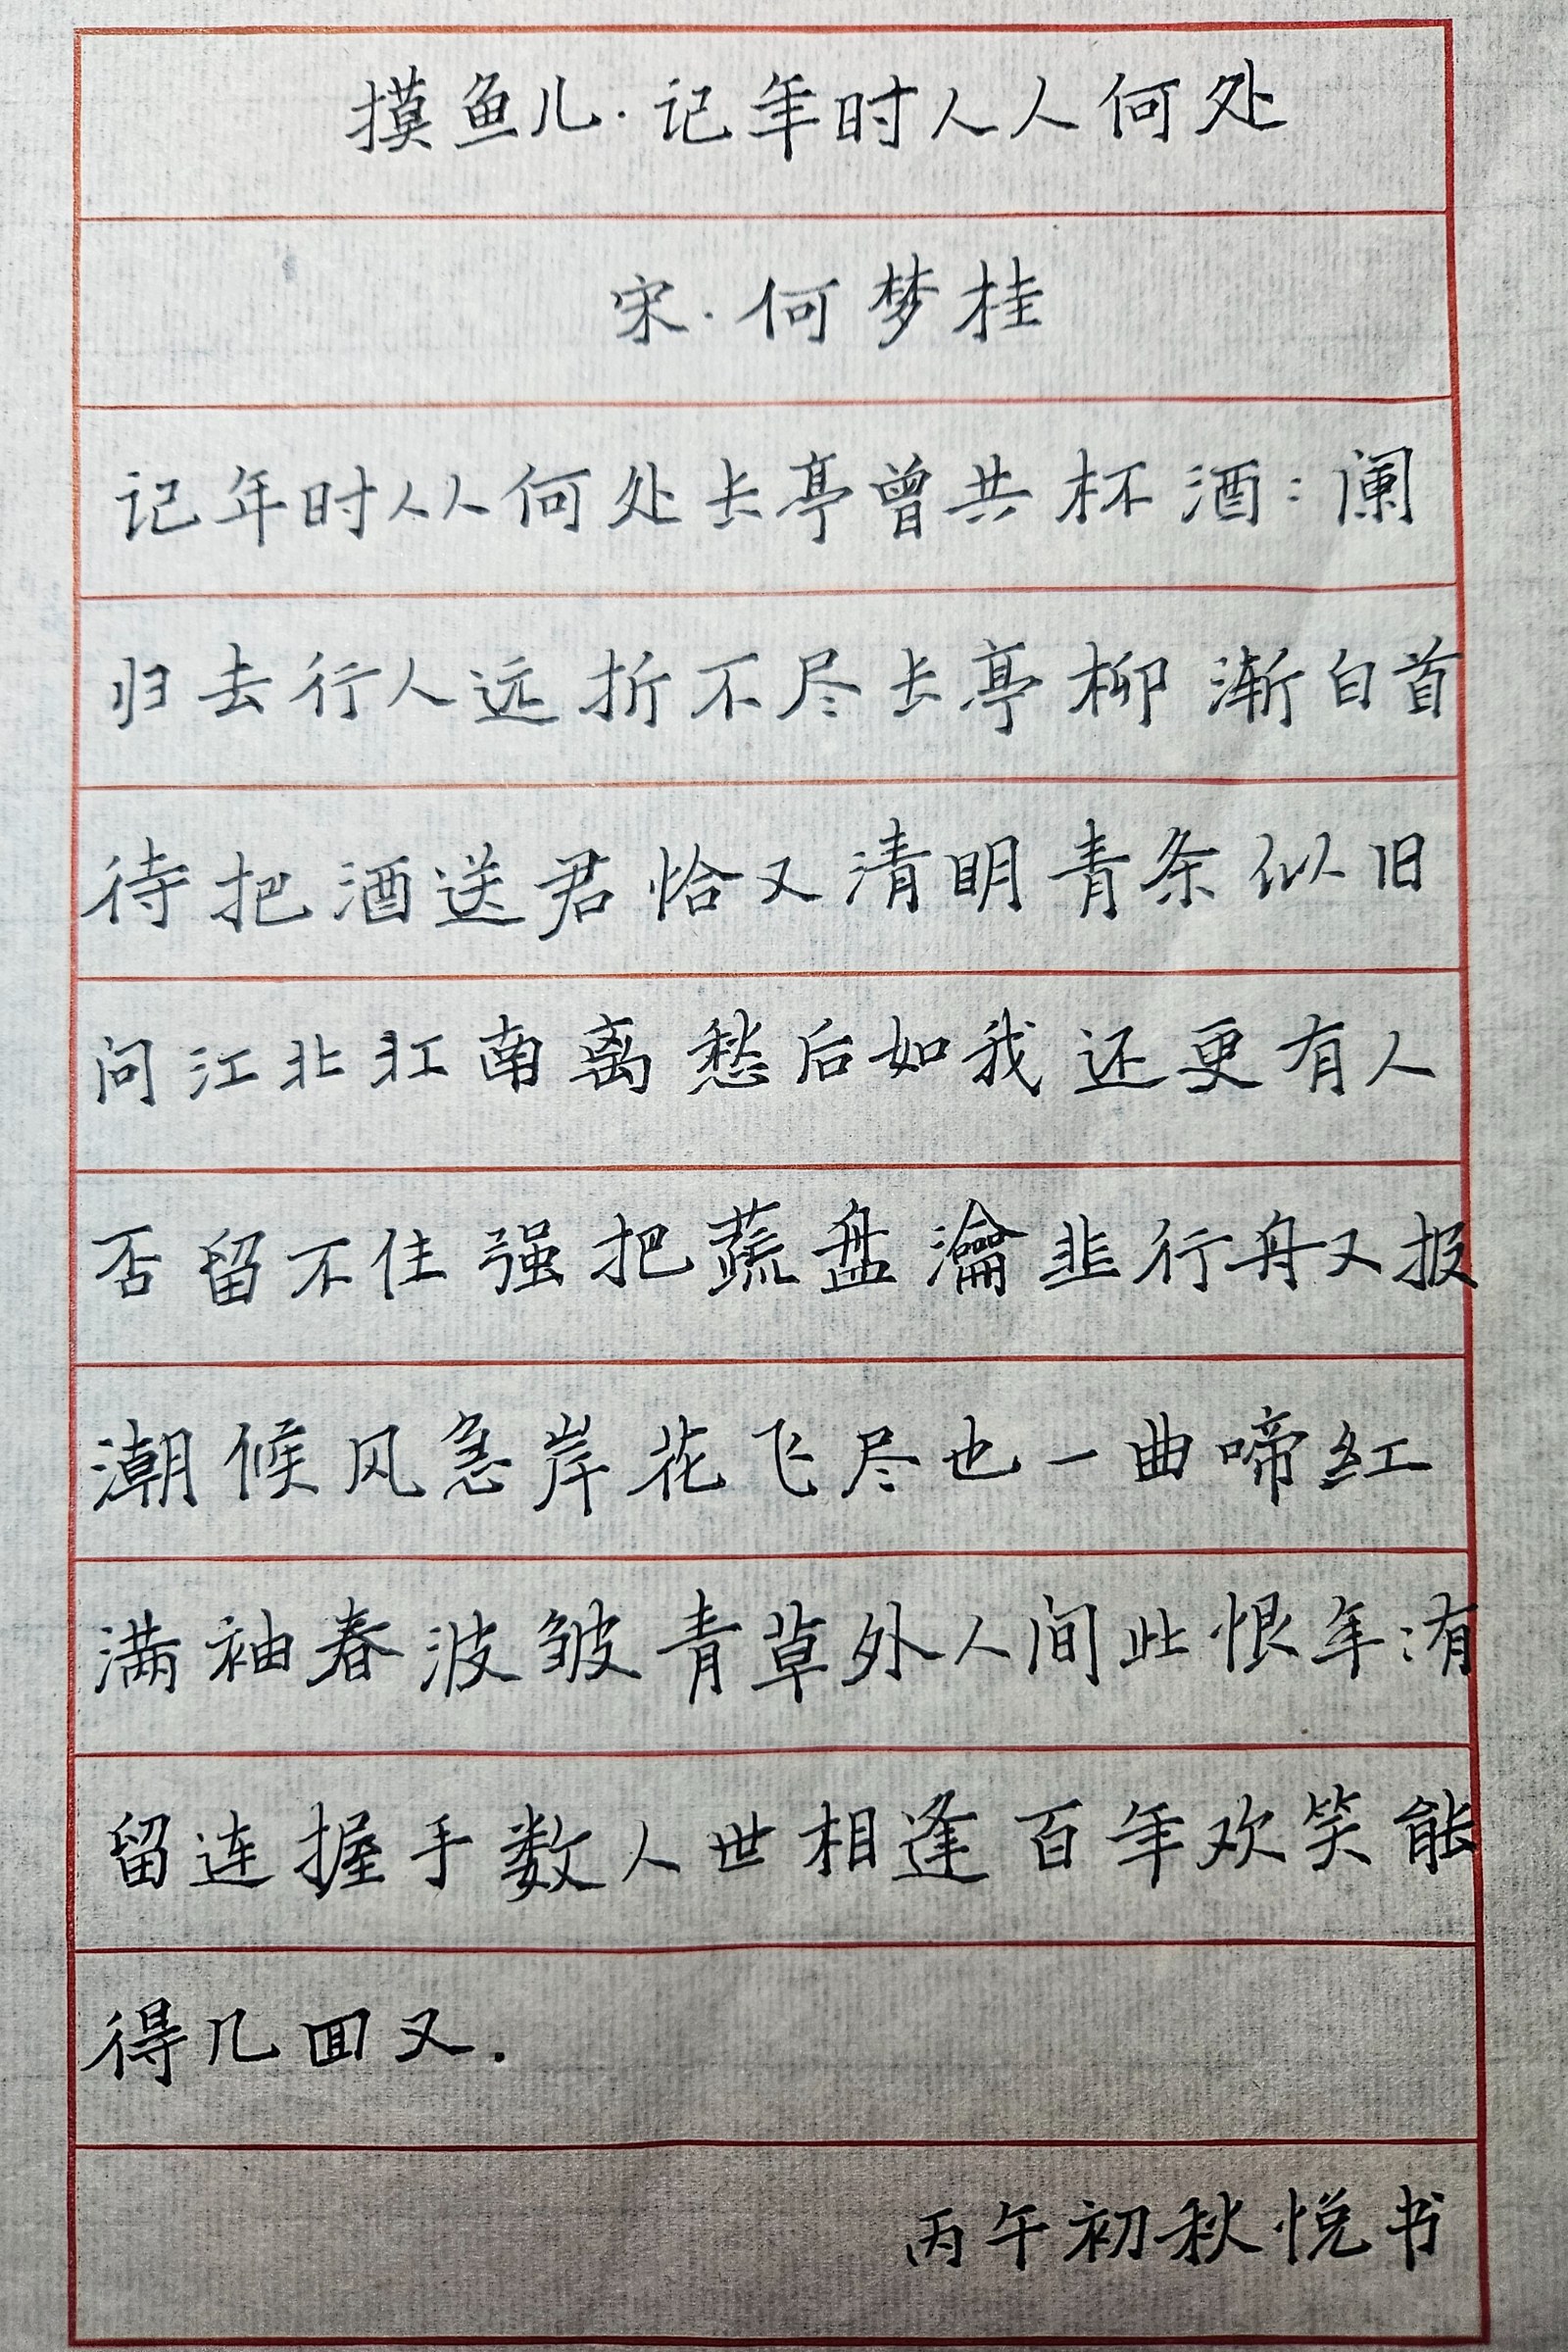 摸鱼儿·记年时人人何处
宋·何梦桂
记年时人人何处长亭曾共杯酒:阑
归去行人远折不尽长亭柳渐白首
待把酒送君恰又清明青条似旧
问江北江南离愁后如我还更有人
否留不住强把蔬盘瀹韭行舟又报
潮候风急岸花飞尽也一曲啼红
满袖春波皱青草外人间此恨年:有
留连握手数人世相逢百年欢笑能
得几回又.
丙午初秋悦书